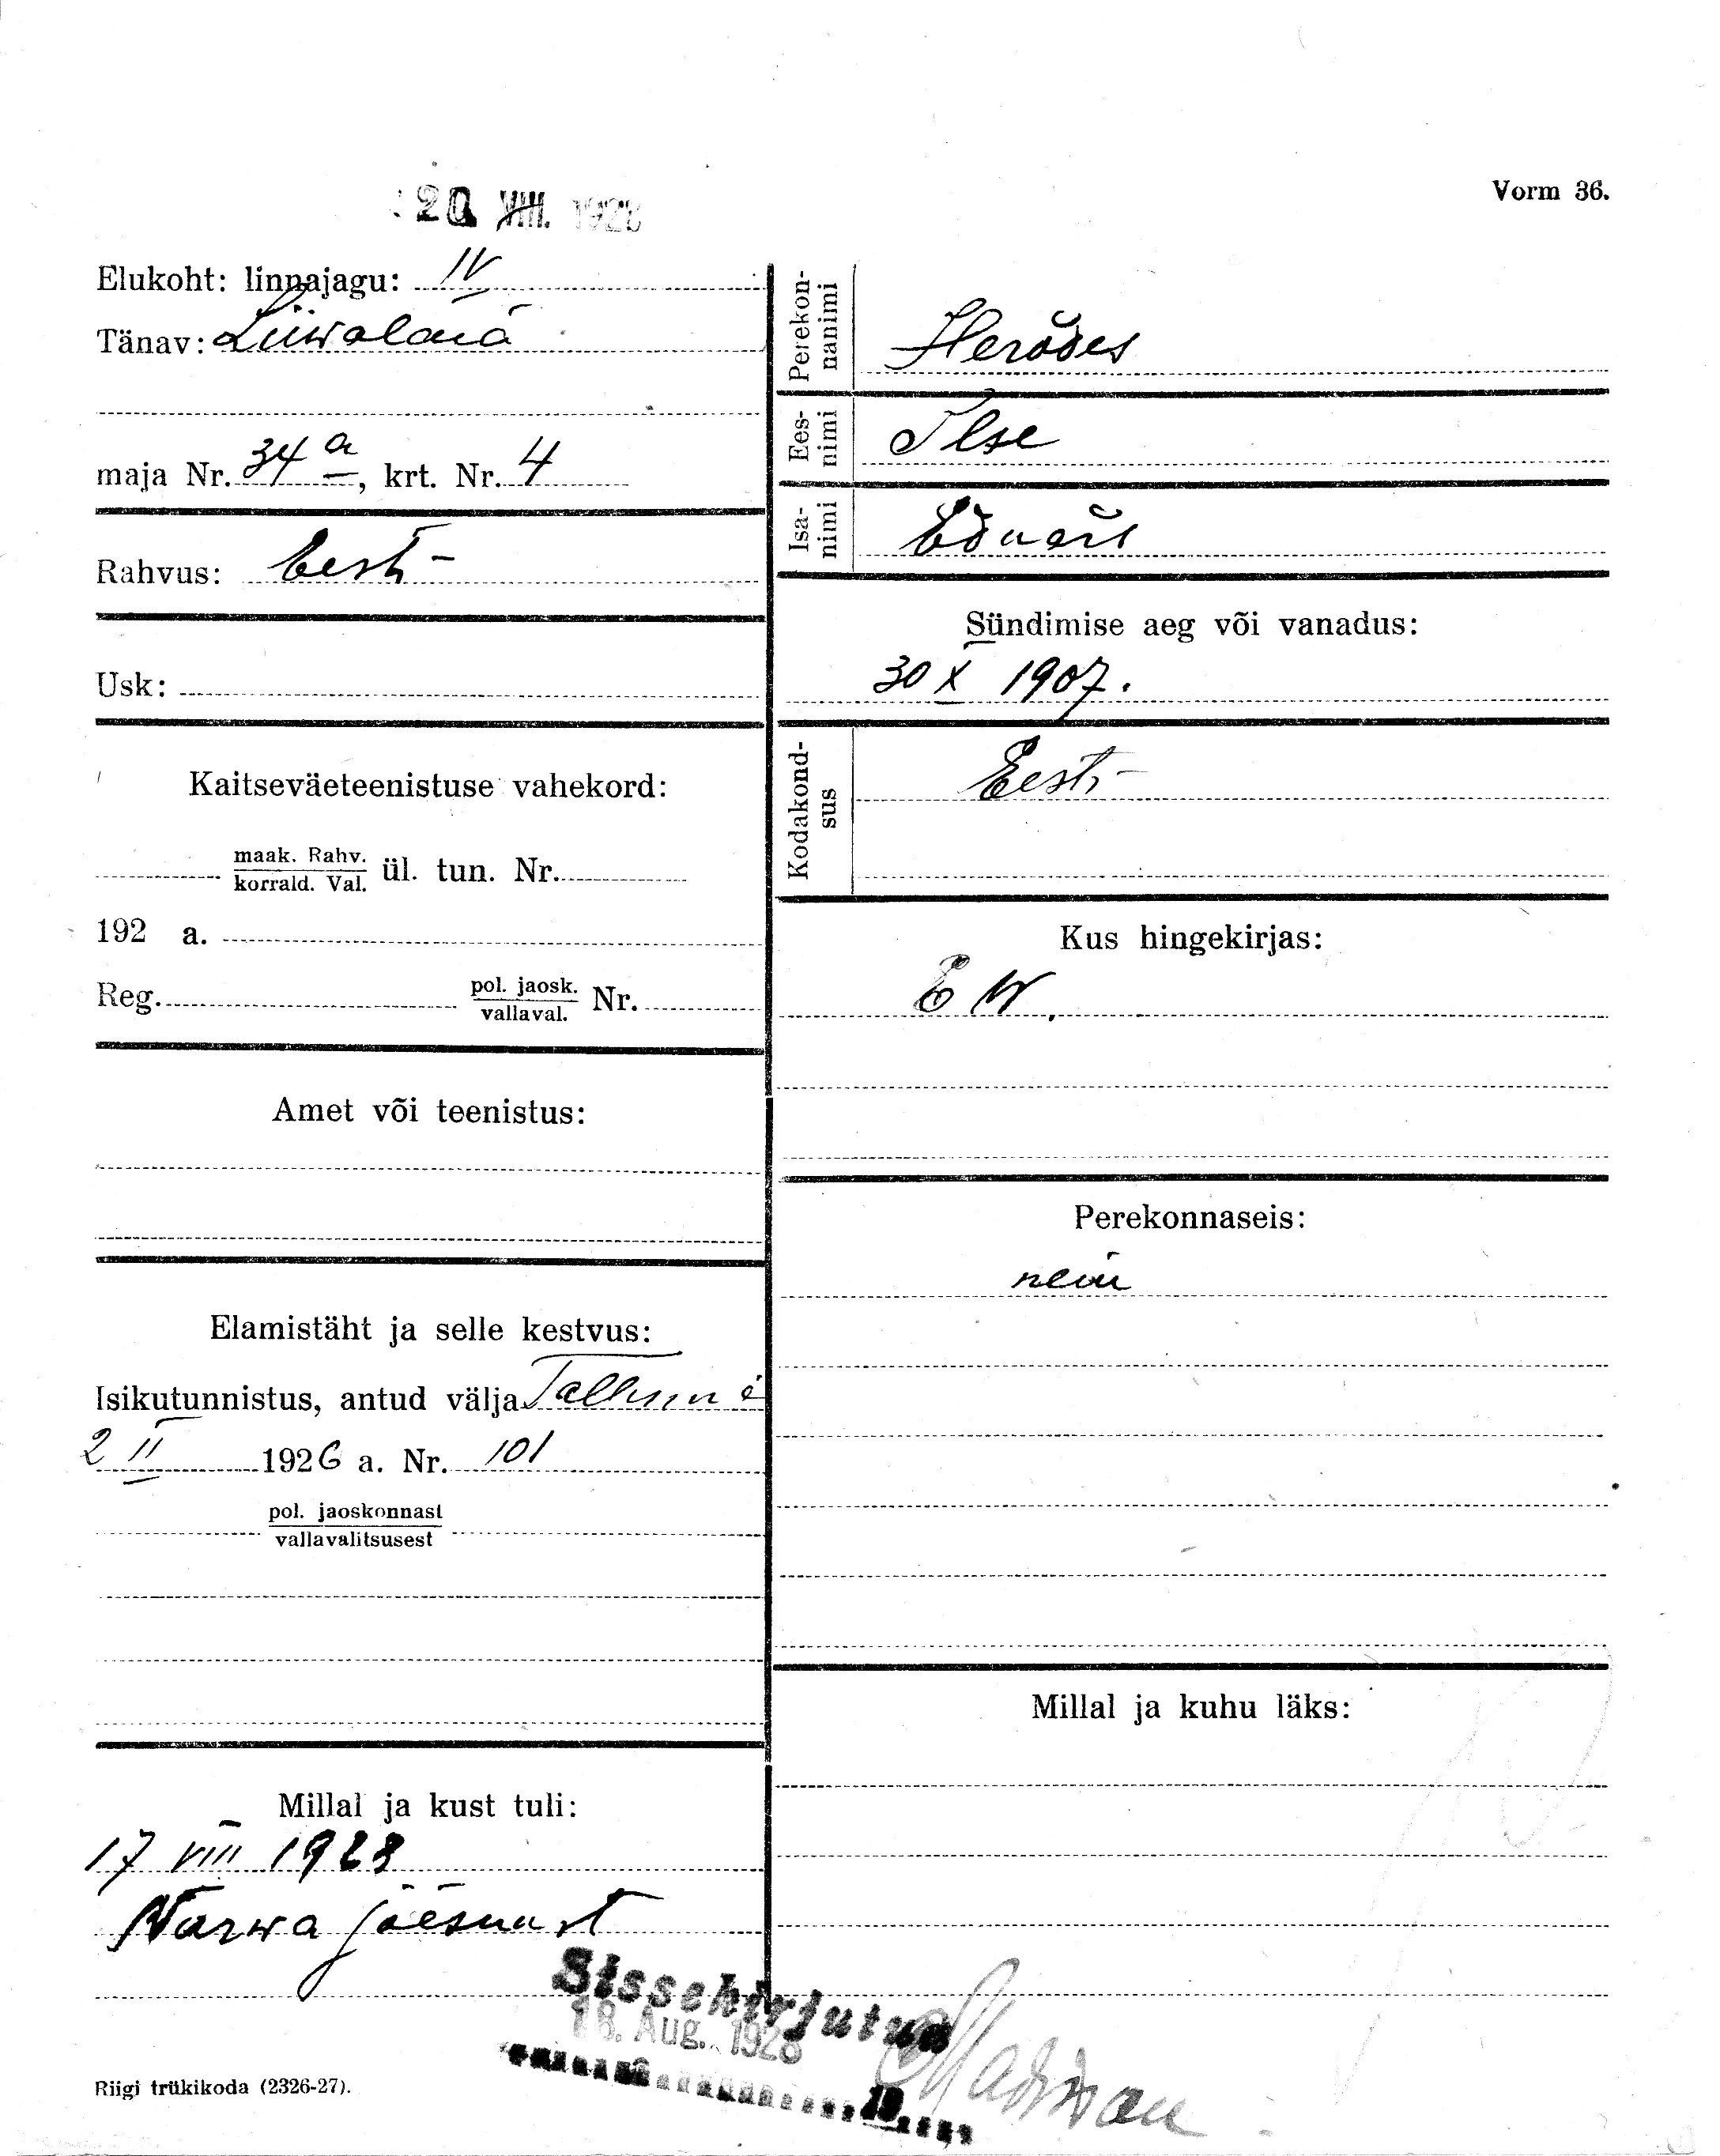 20 VIII. 1928
Vorm 36.
Elukoht: linnajagu: IV
Tänav: Liiwalaia
maja Nr. 34 a, krt. Nr. 4
Rahvus: Eesti
Usk:
Kaitseväeteenistuse vahekord:
maak. Rahv.
korrald. Val. ül. tun. Nr.
192 a.
Reg. pol. jaosk.
vallaval. Nr.
Amet või teenistus:
Elamistäht ja selle kestvus:
Isikutunnistus, antud välja Tallinn
2 II 1926 a. Nr. 101
pol. jaoskonnast
vallavalitsusest
Millal ja kust tuli:
17 VIII 1928
Narwa jõesuust
Perekon-
nanimi
Herodes
Ees-
nimi
Ilse
Isa-
nimi
Eduard
Sündimise aeg või vanadus:
30 X 1907.
Kodakond-
sus
Eesti
Kus hingekirjas:
E W.
Perekonnaseis:
neiu
Millal ja kuhu läks:
Sissekirjutud
18. Aug. 1928
19
Riigi trükikoda (2326-27).